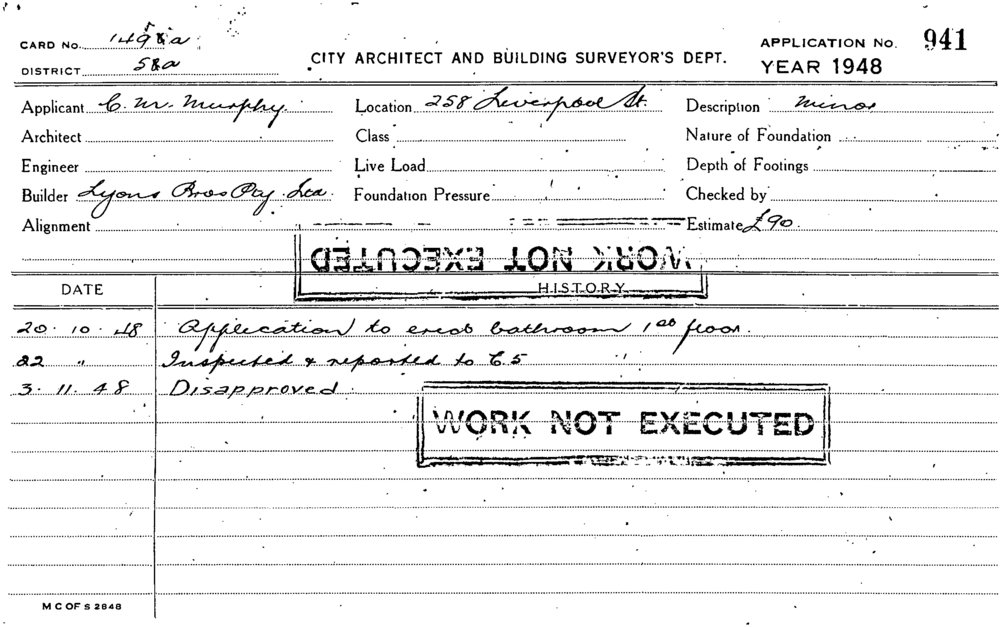 CARD No. 1498a
CITY ARCHITECT AND BUILDING SURVEYOR'S DEPT.
APPLICATION No. 941
DISTRICT 58a
YEAR 1948
Applicant C. M. Murphy Location 258 Liverpool St. Description Minor
Architect Class Nature of Foundation
Engineer Live Load Depth of Footings
Builder Lyons Bros Pty Ltd. Foundation Pressure Checked by
Alignment Estimate £90.
WORK NOT EXECUTED
DATE HISTORY
20. 10. 48 Application to erect bathroom 1st floor.
22 " Inspected & reported to C.S "
3. 11. 48 Disapproved.
WORK NOT EXECUTED
M C OF S 2848